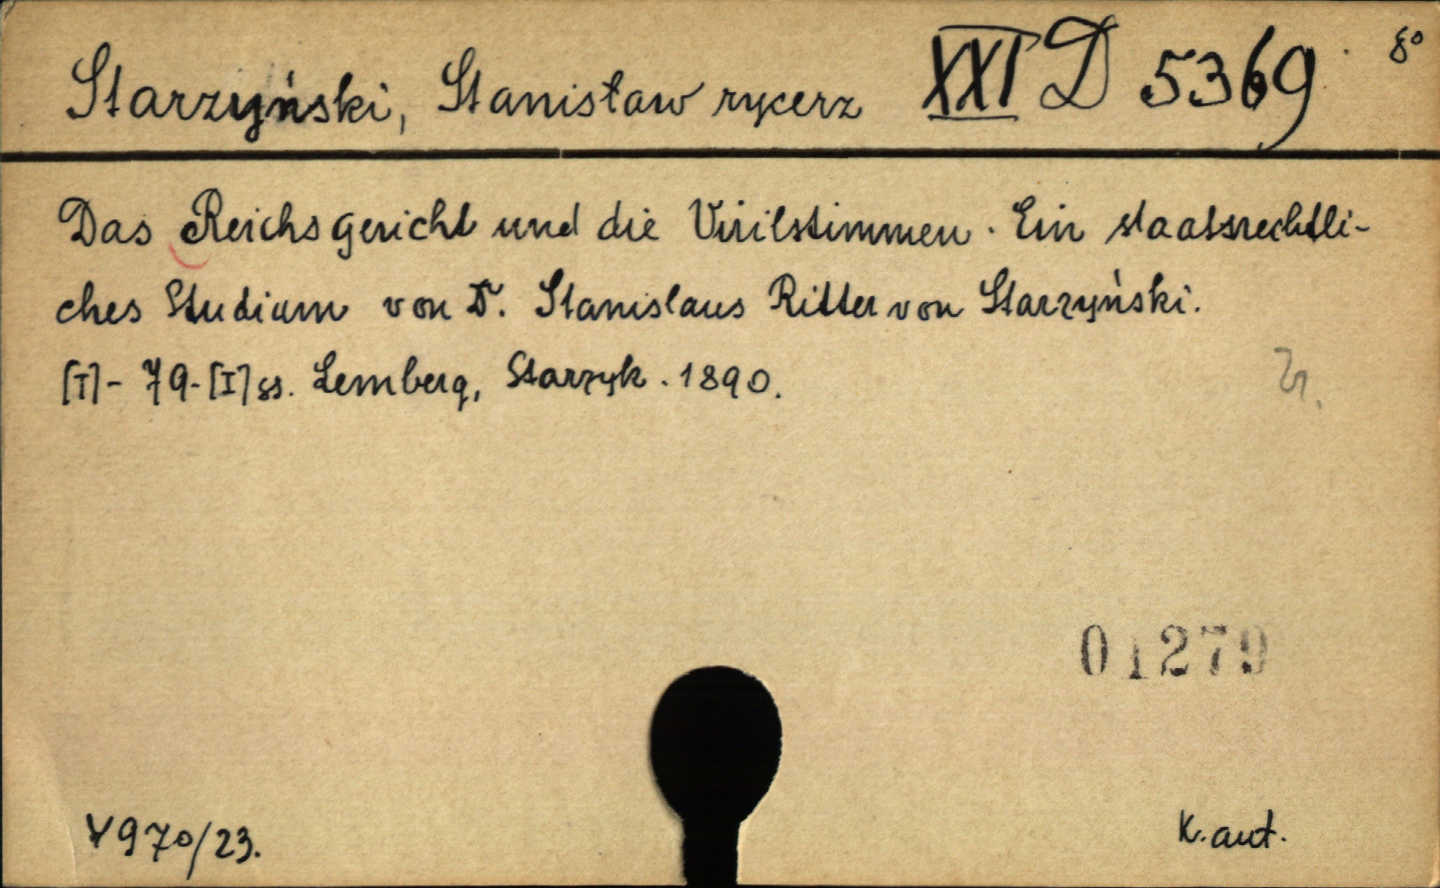 Starzyński, Stanisław rycerz XXI D 5369 8°
Das Reichsgericht und die Virilstimmen. Ein staatsrechtli-
ches Studium von Dr. Stanislaus Ritter von Starzyński.
[I]-79-[I] ss. Lemberg, Starzyk. 1890.
01279
V 970/23.
K. aut.